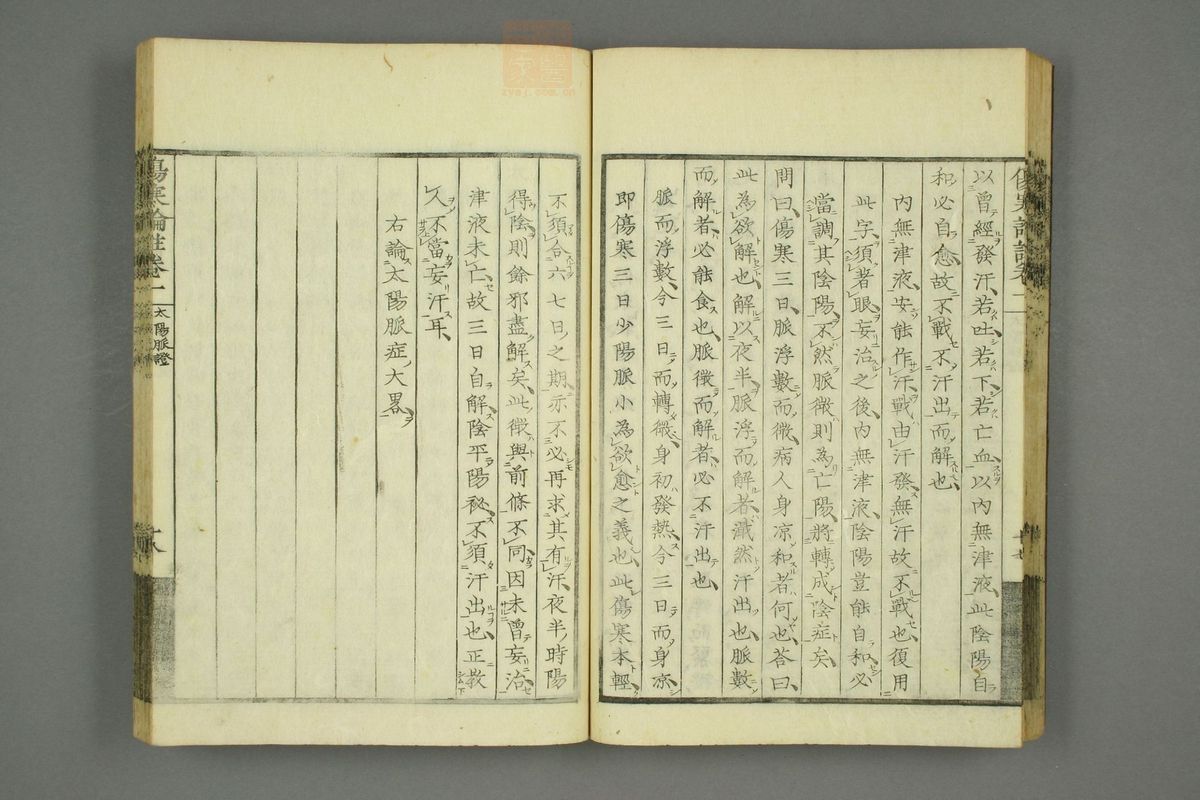 以曾經發汗若吐若下若亡血以內無津液此陰陽自
和必自愈故不戰不汗出而解也
內無津液安能作汗戰由汗發無汗故不戰也復用
此字須著眼妄治之後內無津液陰陽豈能自和必
當調其陰陽不然脈微則為亡陽將轉成陰症矣
問曰傷寒三日脈浮數而微病人身凉和者何也荅曰
此為欲解也解以夜半脈浮而解者濈然汗出也脈數
而解者必能食也脈微而解者必不汗出也
脈而浮數今三日而轉微身初發熱今三日而身凉
即傷寒三日少陽脈小為欲愈之義也此傷寒本輕
不須合六七日之期亦不必再求其有汗夜半時陽
得陰則餘邪盡解矣此微與前條不同因未曾妄治
津液未亡故三日自解陰平陽祕不須汗出也正教
人不當妄汗耳
右論太陽脈症大畧
傷寒論註卷一
太陽脈證
十八
zysj.com.cn